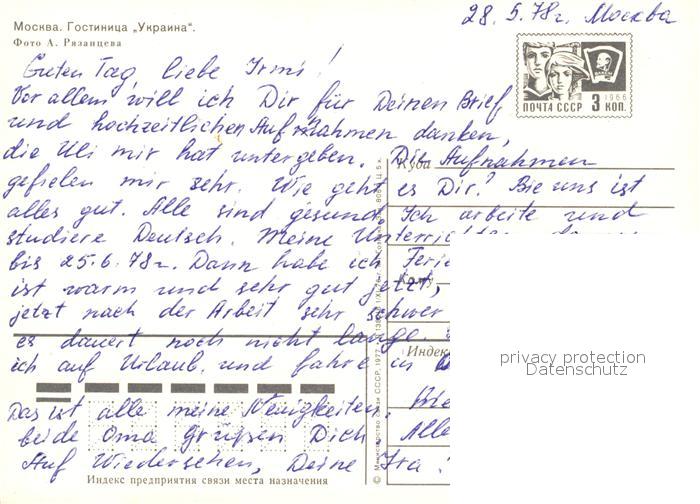 28. 5. 78 г. Москва
Москва. Гостиница „Украина“.
Фото А. Рязанцева
ПОЧТА СССР 3 КОП.
1966
Guten Tag, liebe Irmi!
Vor allem will ich Dir für Deinen Brief
und hochzeitlichen Aufnahmen danken,
die Uli mir hat untergeben. Die Aufnahmen
Куда
gefielen mir sehr. Wie geht es Dir? Bie uns ist
alles gut. Alle sind gesund. Ich arbeite und
studiere Deutsch. Meine Unterrichten
bis 25.6.78 г. Dann habe ich Ferie
ist warm und sehr gut jetzt,
jetzt nach der Arbeit sehr schwer
es dauert noch nicht lange.
Индек
ich auf Urlaub und fahre in
privacy protection
Datenschutz
Das ist alle meine Neuigkeiten. Bie
beide Oma grüßen Dich. Alle
Auf Wiedersehen, Deine Ira!
Индекс предприятия связи места назначения